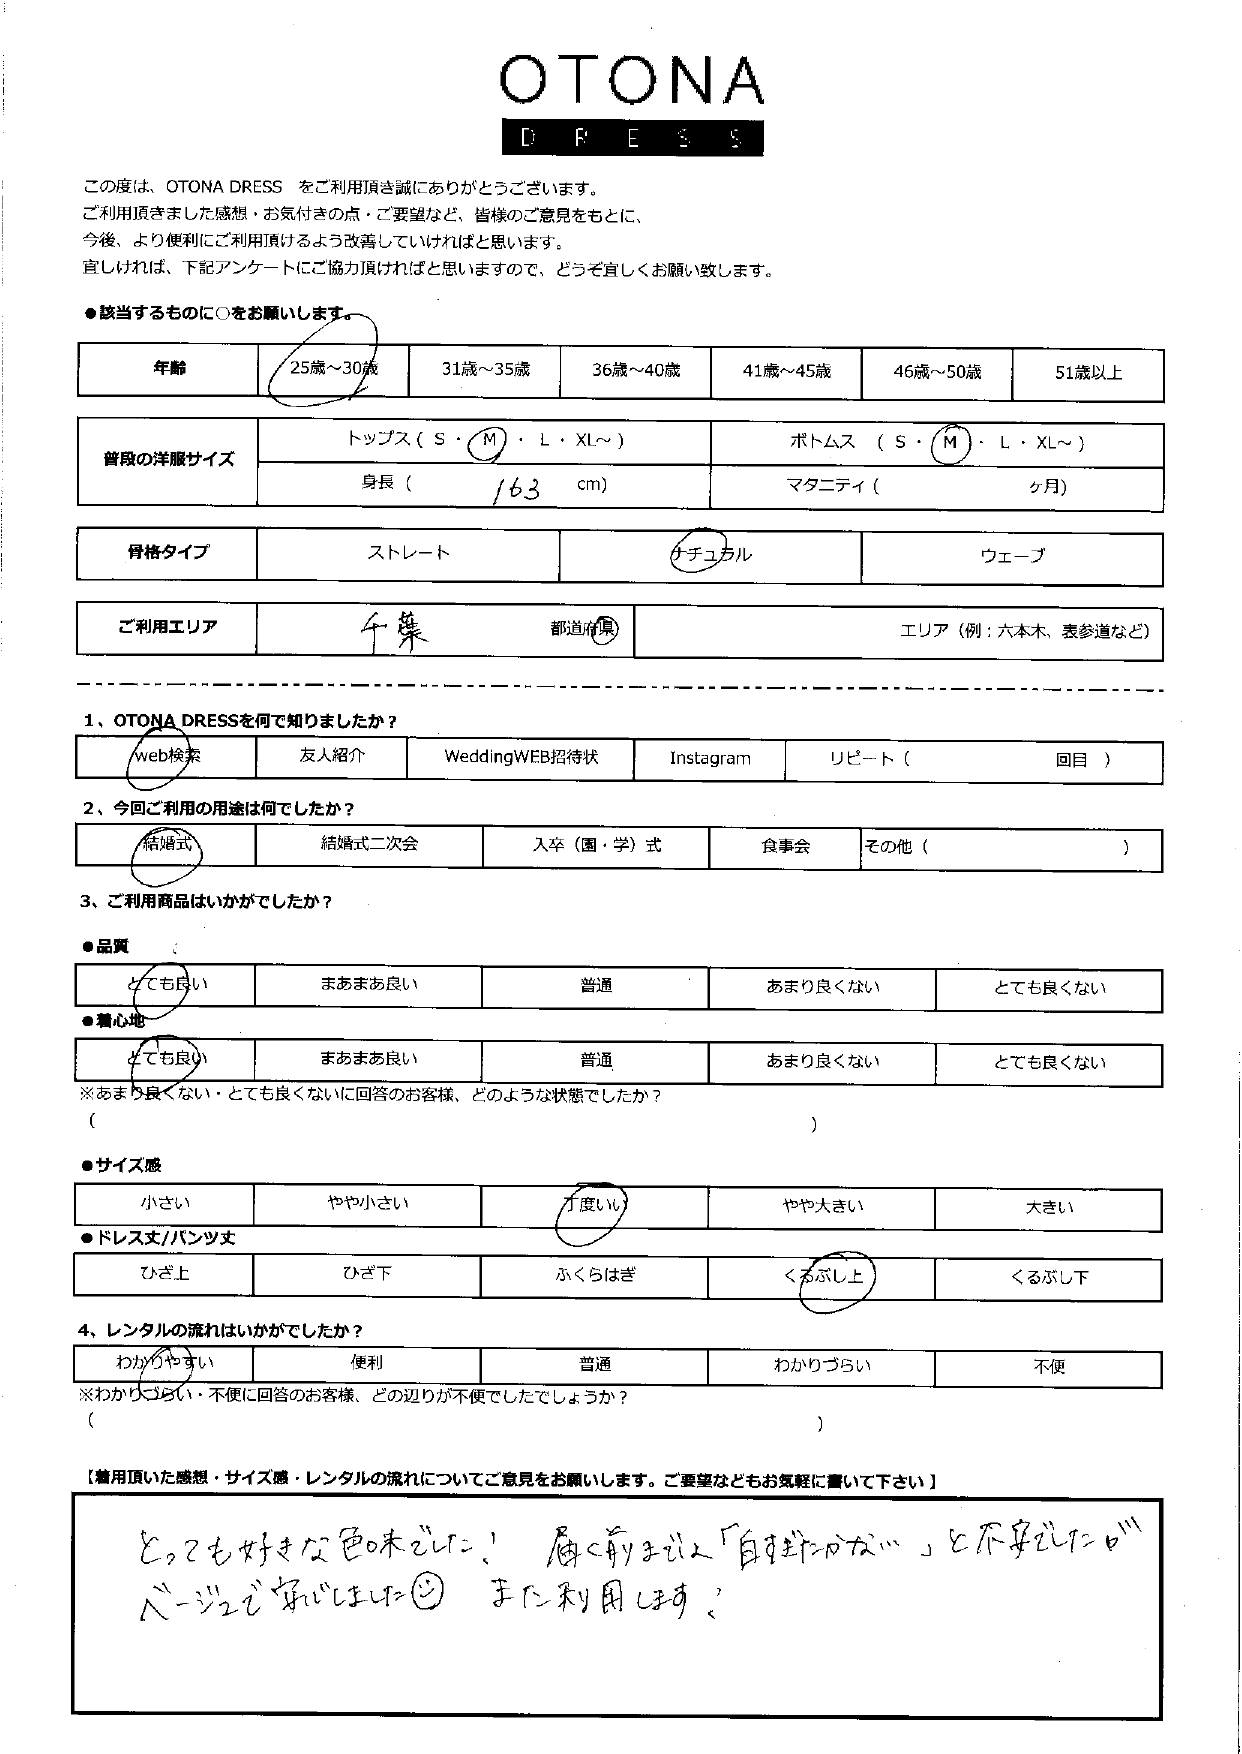 OTONA
DRESS
この度は、OTONA DRESS をご利用頂き誠にありがとうございます。
ご利用頂きました感想・お気付きの点・ご要望など、皆様のご意見をもとに、
今後、より便利にご利用頂けるよう改善していければと思います。
宜しければ、下記アンケートにご協力頂ければと思いますので、どうぞ宜しくお願い致します。
●該当するものに○をお願いします。
年齢 25歳～30歳 31歳～35歳 36歳～40歳 41歳～45歳 46歳～50歳 51歳以上
普段の洋服サイズ トップス ( S ・ M ・ L ・ XL～ ) ボトムス ( S ・ M ・ L ・ XL～ )
身長 ( 163 cm) マタニティ ( ヶ月)
骨格タイプ ストレート ナチュラル ウェーブ
ご利用エリア 千葉 都道府県 エリア（例：六本木、表参道など）
1、OTONA DRESSを何で知りましたか？
web検索 友人紹介 WeddingWEB招待状 Instagram リピート ( 回目 )
2、今回ご利用の用途は何でしたか？
結婚式 結婚式二次会 入卒（園・学）式 食事会 その他 ( )
3、ご利用商品はいかがでしたか？
●品質
とても良い まあまあ良い 普通 あまり良くない とても良くない
●着心地
とても良い まあまあ良い 普通 あまり良くない とても良くない
※あまり良くない・とても良くないに回答のお客様、どのような状態でしたか？
( )
●サイズ感
小さい やや小さい 丁度いい やや大きい 大きい
●ドレス丈/パンツ丈
ひざ上 ひざ下 ふくらはぎ くるぶし上 くるぶし下
4、レンタルの流れはいかがでしたか？
わかりやすい 便利 普通 わかりづらい 不便
※わかりづらい・不便に回答のお客様、どの辺りが不便でしたでしょうか？
( )
【着用頂いた感想・サイズ感・レンタルの流れについてご意見をお願いします。ご要望などもお気軽に書いて下さい】
とっても好きな色味でした！ 届く前までは「白すぎたかな…」と不安でしたが
ベージュで安心しました また利用します！